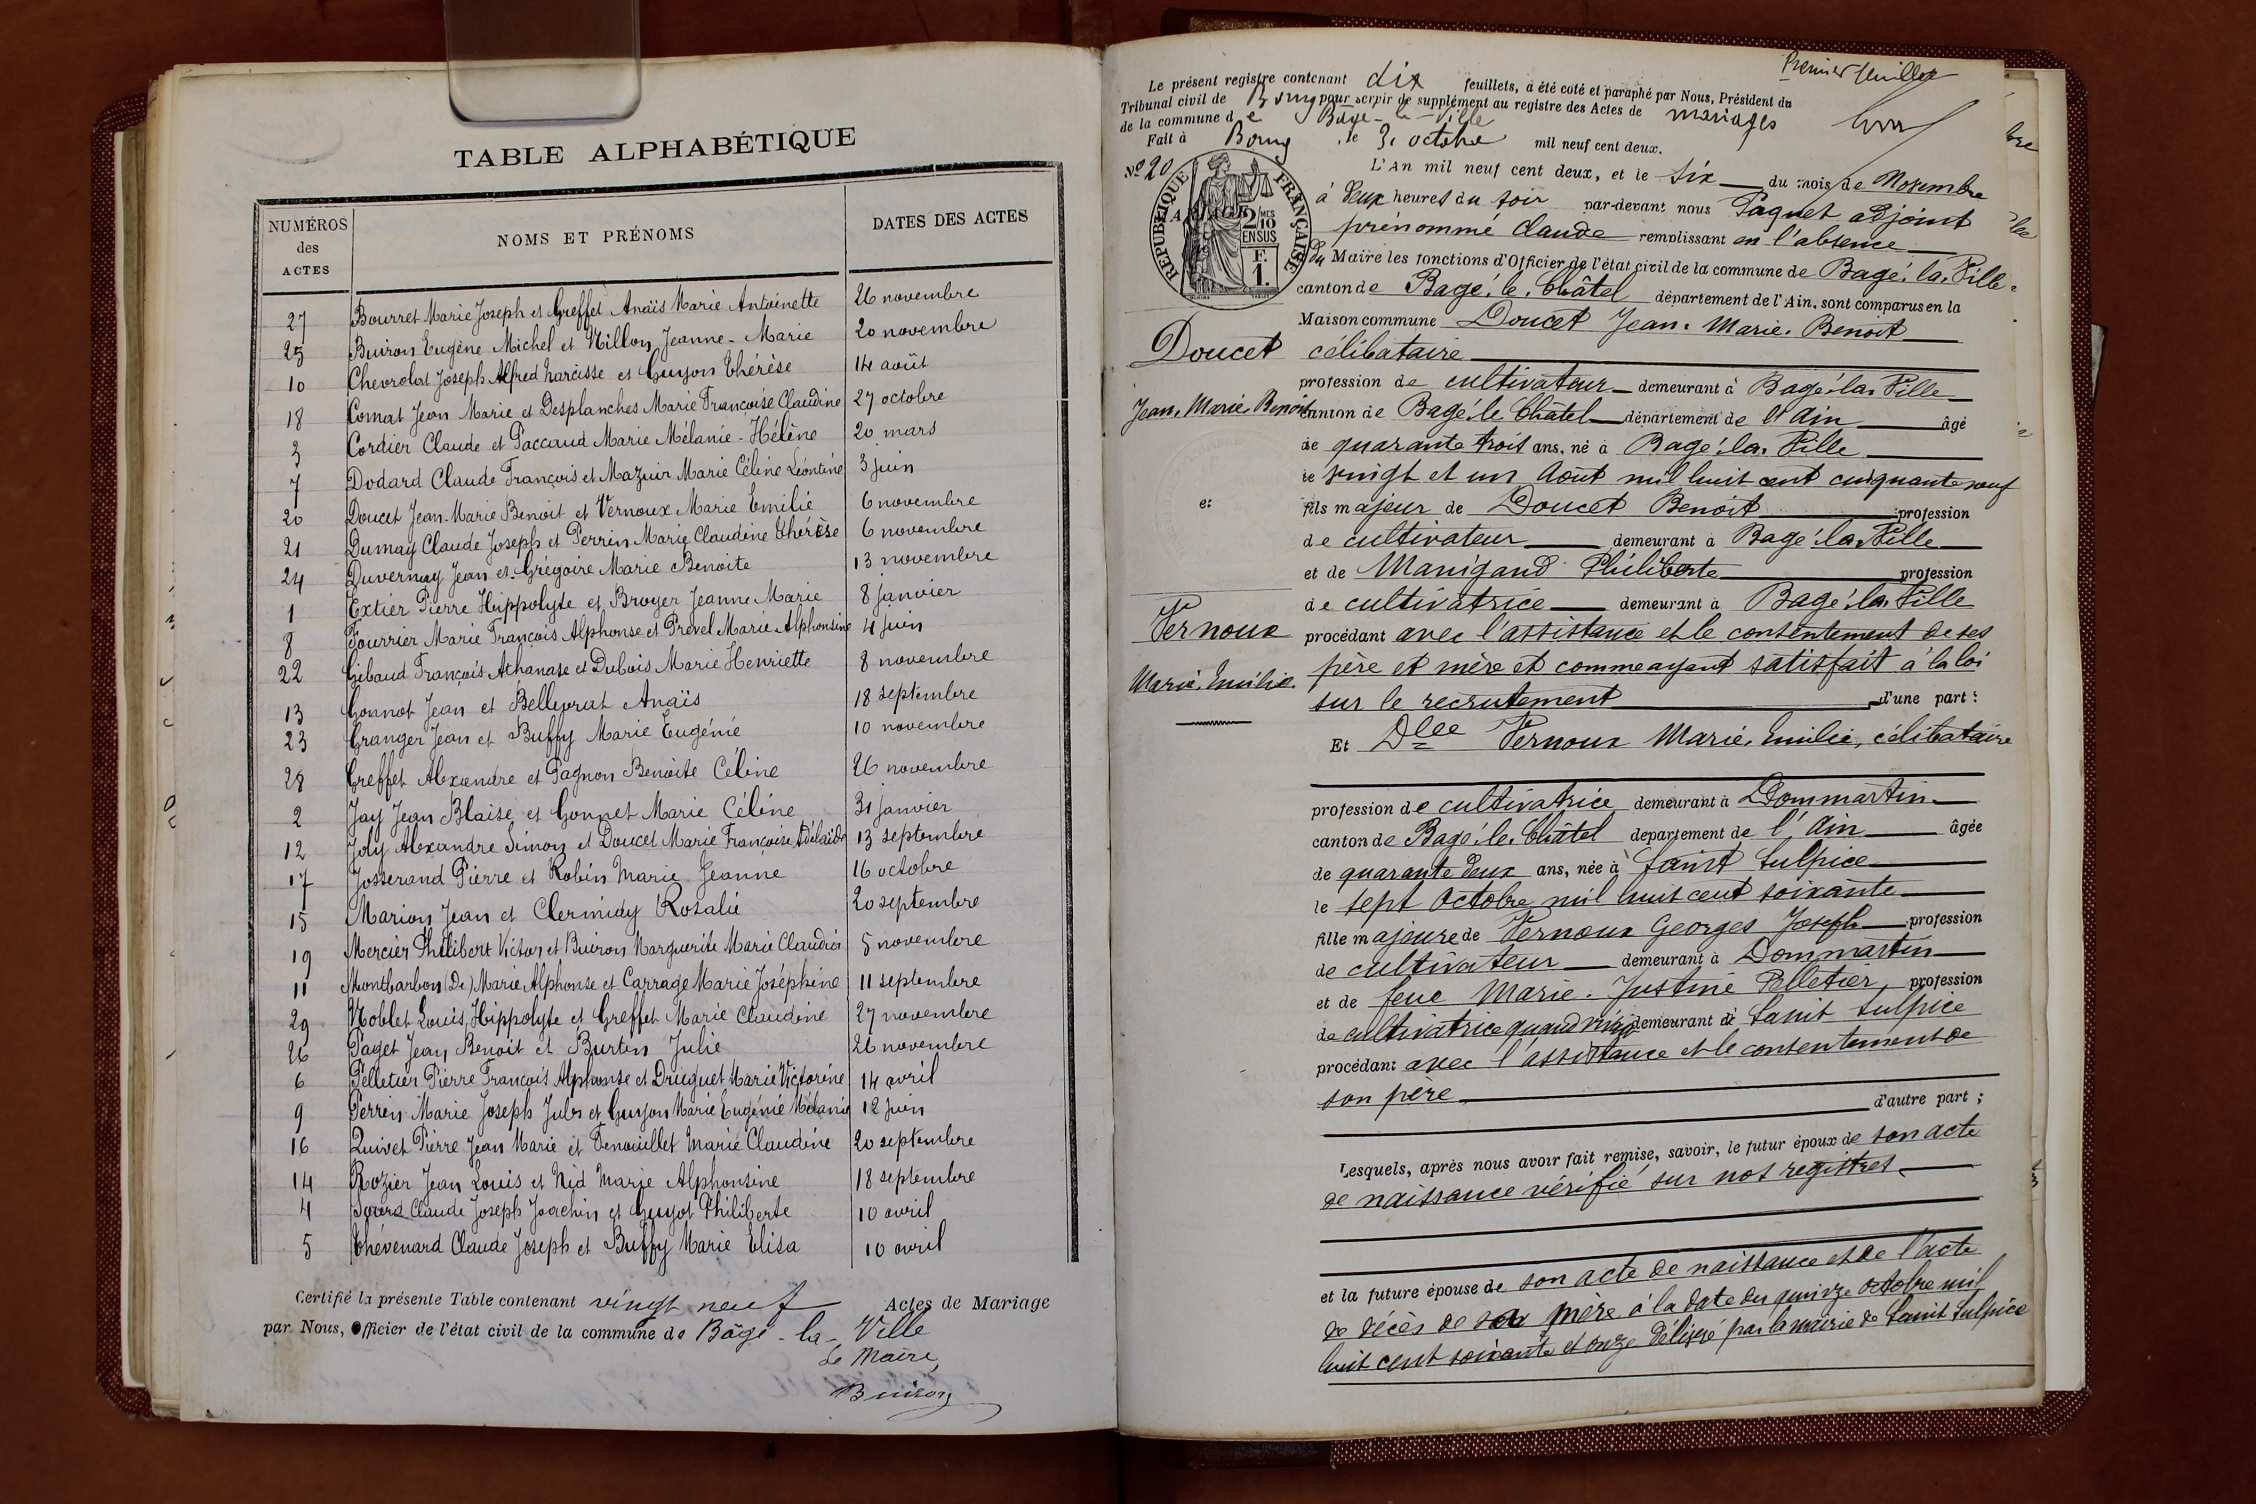 TABLE ALPHABÉTIQUE
NUMÉROS des ACTES
NOMS ET PRÉNOMS
DATES DES ACTES
27 Bourret Marie Joseph et Greffet Anaïs Marie Antoinette 26 novembre
25 Buiron Eugène Michel et Nillon Jeanne-Marie 20 novembre
10 Chevrolat Joseph Alfred Narcisse et Guyon Thérèse 14 août
18 Comat Jean Marie et Desplanches Marie Françoise Claudine 27 octobre
3 Cordier Claude et Paccaud Marie Mélanie-Hélène 20 mars
7 Dodard Claude François et Mazuir Marie Céline Léontine 3 juin
20 Doucet Jean-Marie Benoit et Vernoux Marie Emilie 6 novembre
21 Dumay Claude Joseph et Perrin Marie Claudine Thérèse 6 novembre
24 Duvernay Jean et Grégoire Marie Benoite 13 novembre
1 Extier Pierre Hippolyte et Broyer Jeanne Marie 8 janvier
8 Fourrier Marie François Alphonse et Prevel Marie Alphonsine 4 juin
22 Gibaud François Athanase et Dubois Marie Henriette 8 novembre
13 Gonnot Jean et Belleprat Anaïs 18 septembre
23 Granger Jean et Buffy Marie Eugénie 10 novembre
28 Greffet Alexandre et Pagnon Benoite Céline 26 novembre
2 Jay Jean Blaise et Gonnet Marie Céline 31 janvier
12 Joly Alexandre Simon et Doucet Marie Françoise Adélaïde 13 septembre
17 Josserand Pierre et Robin Marie Jeanne 16 octobre
15 Marion Jean et Clermidy Rosalie 20 septembre
19 Mercier Philibert Victor et Buiron Marguerite Marie Claudia 5 novembre
11 Montbarbon (De) Marie Alphonse et Carrage Marie Joséphine 11 septembre
29 Noblet Louis Hippolyte et Greffet Marie Claudine 27 novembre
26 Paget Jean Benoit et Burtin Julie 26 novembre
6 Pelletier Pierre François Alphonse et Druguet Marie Victorine 14 avril
9 Perrin Marie Joseph Jules et Guyon Marie Eugénie Mélanie 12 juin
16 Quivet Pierre Jean Marie et Fenouillet Marie Claudine 20 septembre
14 Rozier Jean Louis et Nid Marie Alphonsine 18 septembre
4 Sourd Claude Joseph Joachin et Guyot Philiberte 10 avril
5 Thévenard Claude Joseph et Buffy Marie Elisa 10 avril
Certifié la présente Table contenant vingt neuf Actes de Mariage
par Nous, Officier de l'état civil de la commune de Bâgé-la-Ville
Le Maire,
Buiron
Premier feuillet
Le présent registre contenant dix feuillets, a été coté et paraphé par Nous, Président du
Tribunal civil de Bourg pour servir de supplément au registre des Actes de mariages
de la commune de Bâgé-la-Ville
Fait à Bourg, le 31 octobre mil neuf cent deux.
No 20
RÉPUBLIQUE FRANÇAISE
2/10MES
EN SUS
1F.
L'An mil neuf cent deux, et le six du mois de Novembre
à deux heures du soir par-devant nous Paquet adjoint
prénommé Claude remplissant en l'absence
du Maire les fonctions d'Officier de l'état civil de la commune de Bagé.la.Ville
canton de Bagé.le.Châtel département de l'Ain, sont comparus en la
Maison commune Doucet Jean.Marie.Benoit
Doucet
célibataire
profession de cultivateur demeurant à Bagé.la.Ville
Jean.Marie.Benoit
canton de Bagé.le.Châtel département de l'Ain âgé
de quarante trois ans, né à Bagé.la.Ville
le vingt et un Août mil huit cent cinquante neuf
et
fils majeur de Doucet Benoit profession
de cultivateur demeurant à Bagé.la.Ville
et de Manigand Philiberte profession
de cultivatrice demeurant à Bagé.la.Ville
Vernoux
procédant avec l'assistance et le consentement de ses
père et mère et comme ayant satisfait à la loi
Marie.Emilie.
sur le recrutement d'une part:
Et Dlle Vernoux Marie.Emilie, célibataire
profession de cultivatrice demeurant à Dommartin
canton de Bagé.le.Châtel département de l'Ain âgée
de quarante deux ans, née à Saint Sulpice
le sept Octobre mil huit cent soixante
fille majeure de Vernoux Georges Joseph profession
de cultivateur demeurant à Dommartin
et de feue Marie.Justine Pelletier, profession
de cultivatrice quand vivait demeurant à Saint Sulpice
procédant avec l'assistance et le consentement de
son père
d'autre part;
Lesquels, après nous avoir fait remise, savoir, le futur époux de son acte
de naissance vérifié sur nos registres
et la future épouse de son acte de naissance et de l'acte
de décès de sa mère à la date du quinze octobre mil
huit cent soixante et onze délivré par la mairie de Saint Sulpice